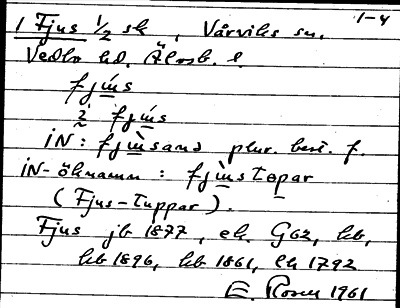 1-4
1 Fjus 1/2 sk , Vårviks sn.
Vedbo hd. Älvsb. l.
fjùs
i fjùs
iN: fjùsans plur. best. f.
iN-öknamn : fjùstopar
(Fjus-tuppar).
Fjus jb 1877, ek. G62, hb,
hb 1896, hb 1861, ek 1792
E. Rosen 1961